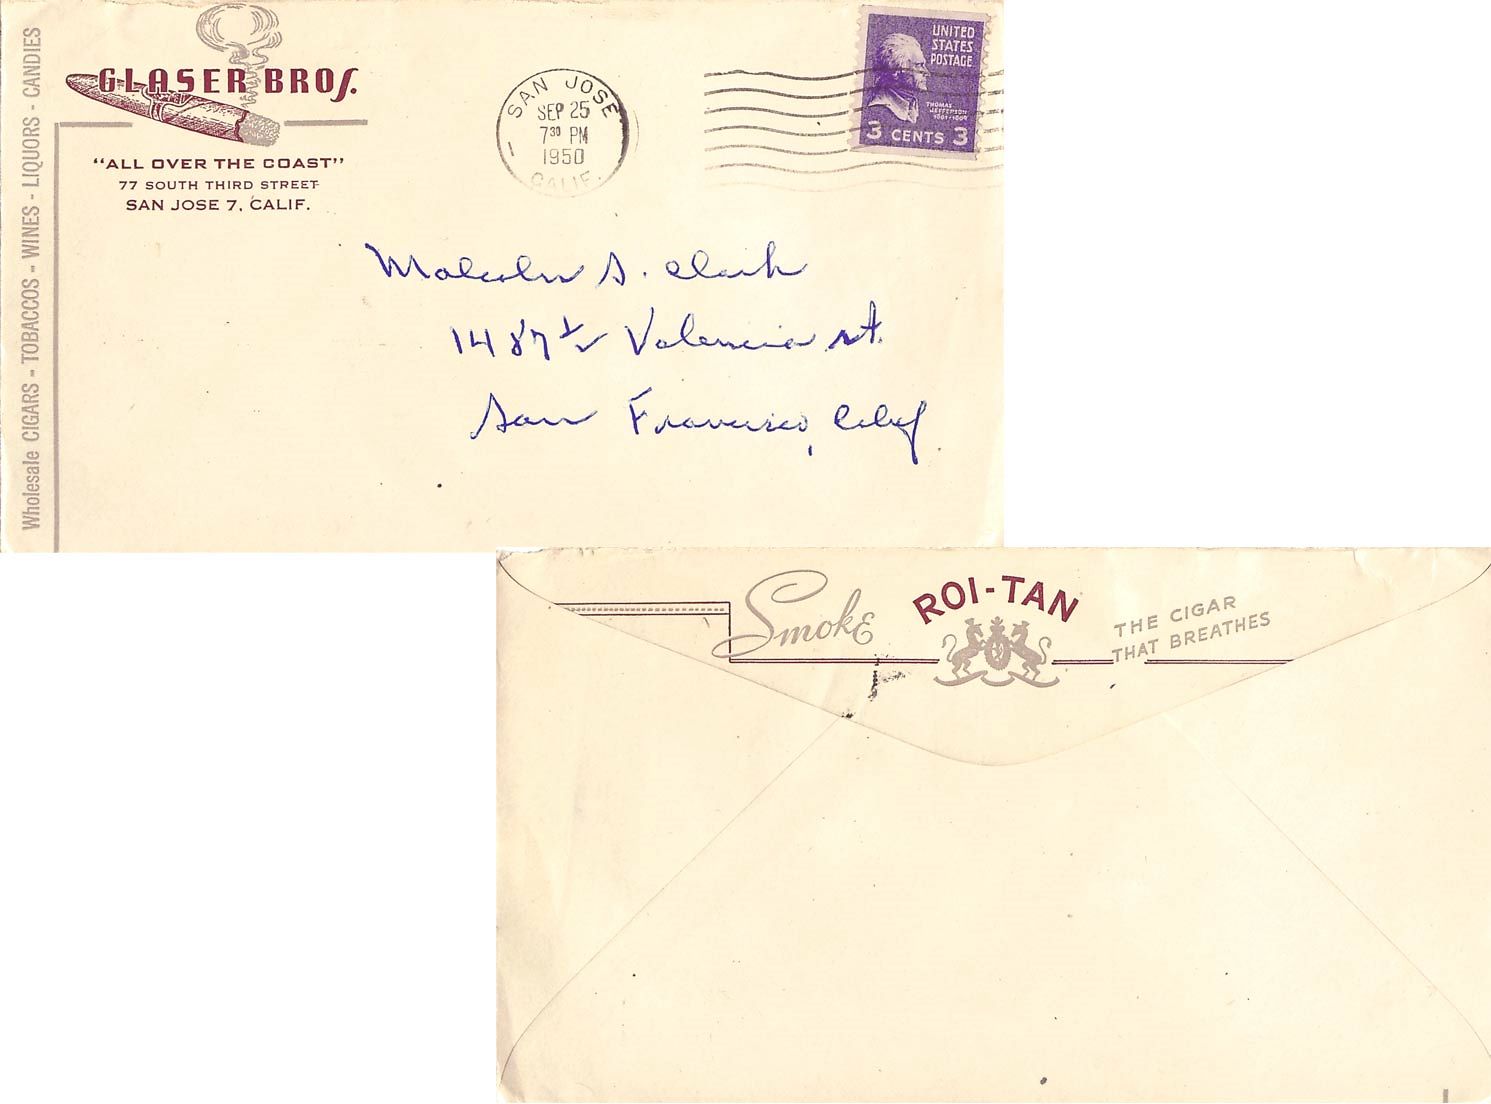 Wholesale CIGARS - TOBACCOS - WINES - LIQUORS - CANDIES
GLASER BROS.
"ALL OVER THE COAST"
77 SOUTH THIRD STREET
SAN JOSE 7, CALIF.
SAN JOSE
SEP 25
7 30 PM
1950
CALIF.
UNITED
STATES
POSTAGE
THOMAS
JEFFERSON
1801-1809
3 CENTS 3
Malcolm S. Clark
1487 1/2 Valencia St.
San Francisco, Calif.
Smoke ROI-TAN THE CIGAR
THAT BREATHES